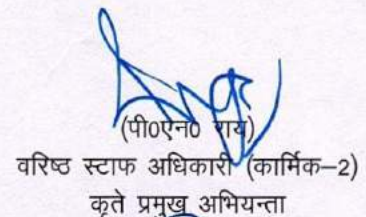 (पी0एन0 राय)
वरिष्ठ स्टाफ अधिकारी (कार्मिक–2)
कृते प्रमुख अभियन्ता